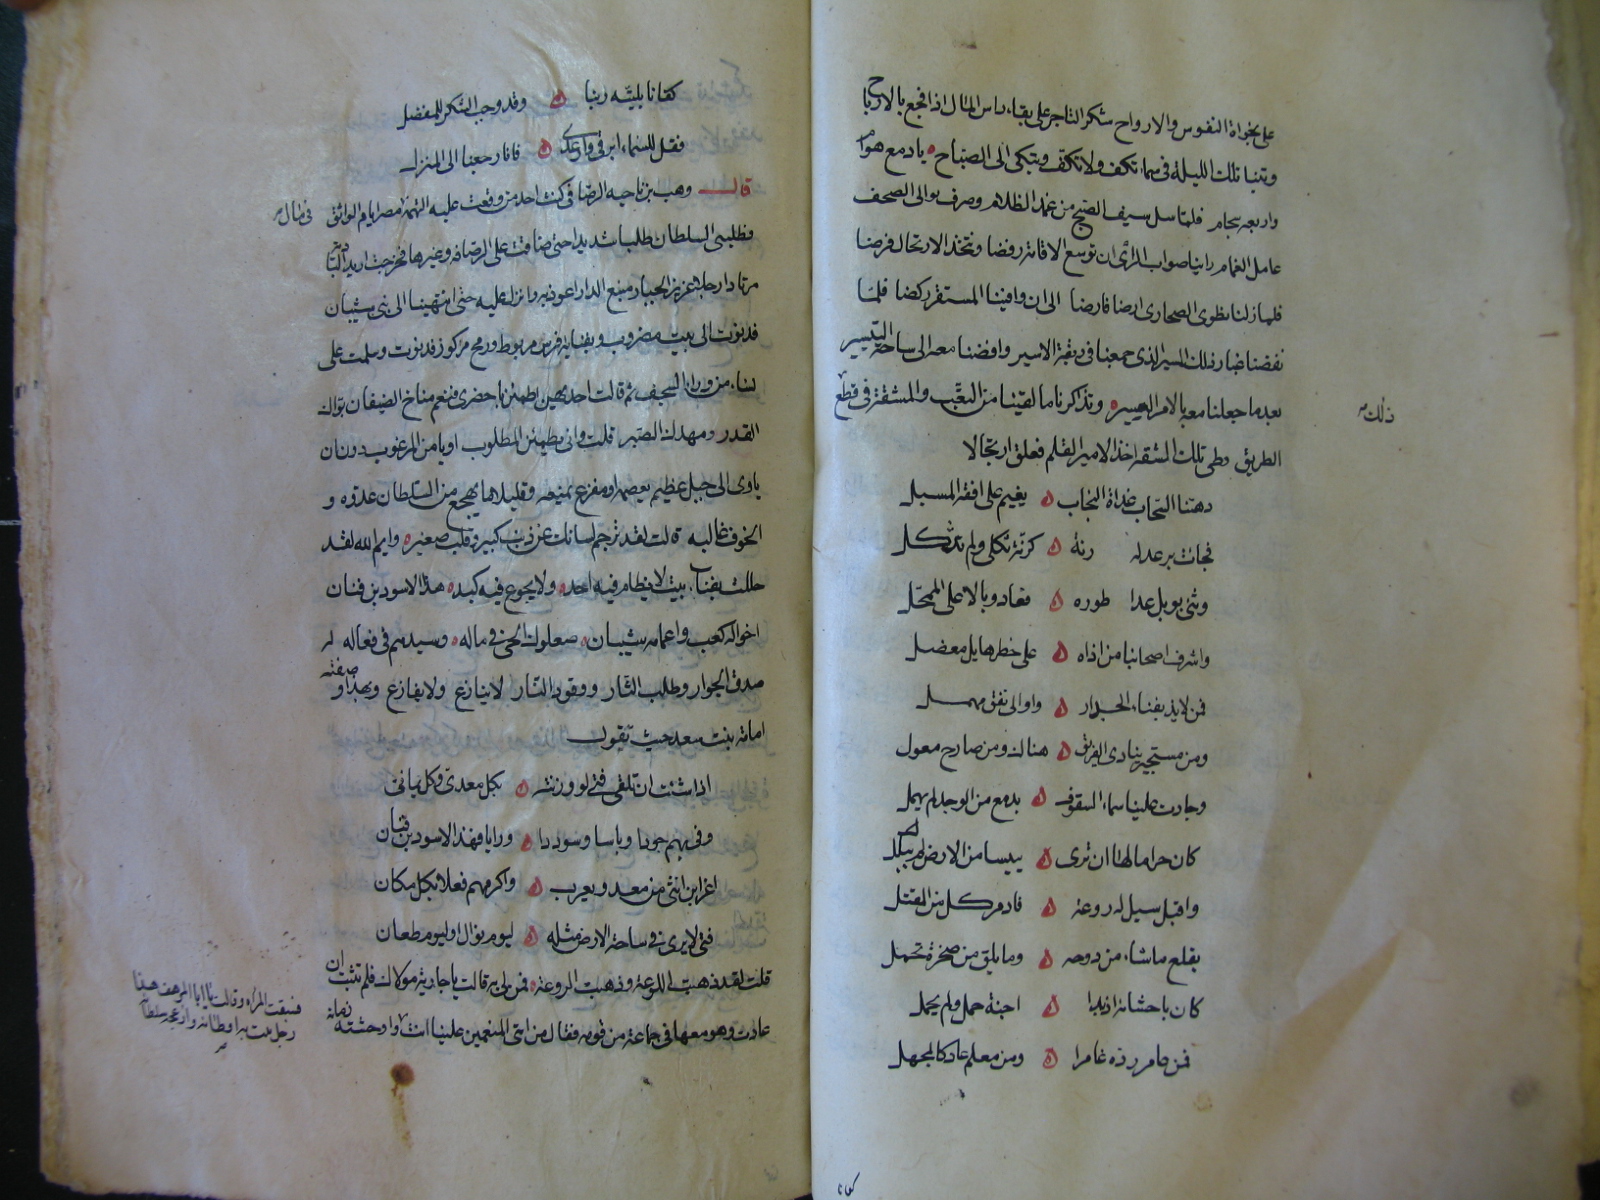 على نجواة النفوس والارواح شكر التاجر على بقاء راس المال اذا فجع بالارباح
وبتنا تلك الليلة في سماء تكف ولا تكف وتبكى الى الصباح يا دمع هوام
واربعه سجام فلما سل سيف الصبح من غمد الظلام وصرف بوالى الصحف
عامل الغمام راينا صواب الرأى ان توسع الاقامة رفضا وتخذ الارتحال فرضا
فما زلنا نطوى الصحارى ارضا فارضا الى ان وافينا المستقر ركضا فلما
نفضنا غبار ذلك المسير الذى جمعنا في ربقة الاسير وافضنا معه الى ساحة التيسير
بعد ما جعلنا معه بالامر العسير وتذاكرنا ما لقينا من التعب والمشقة في قطع
ذلك
الطريق وطي تلك الشقه اخذ الامير القلم فعلق ارتجالا
دهتنا السحاب غداة النجاب بغيم على افقه المسبل
فجات برعد له رنة كرنة ثكلى ولم تثكل
وثنى بوبل عدا طوره فعاد وبالا على الممحل
واشرف اصحابنا من اذاه على خطر هايل معضل
فمن لايذ بفناء الجدار واوالى نفق مهمل
ومن مستجير ينادى الغريق هنالك ومن صارخ معول
وجادت علينا سماء السقوف بدمع من الوجد لم يهمل
كان حراما لها ان ترى يبيسا من الارض لم يبلل
واقبل سيل له روعة فادبر كل عن المقبل
يقلع ما شاء من دوحه وما يلق من صخرة تحمل
كان باحشائه اذ بدا اجنة حمل ولم يحمل
فمن عامر رده غامرا ومن معلم عاد كالمجهل
كفانا
كفانا بليته ربنا وقد وجب الشكر للمفضل
فقل للسماء ابرقى وارعدى فانا رجعنا الى المنزل
قال وهب بن ناجيه الرصافى كنت احد من وقعت عليه التهمة بمصر ايام الواثق في مال
فطلبنى السلطان طلبا شديدا حتى ضاقت على الرصافه وغيرها فخرجت اريد البادية
مرتادا رجلا عزيز الجار منيع الدار اعوذ به وانزل عليه حتى انتهينا الى بنى شيبان
فدنوت الى بيت مضروب وبفنائه فرس مربوط ورمح مركوز فدنوت وسلمت على
نساء من وراء السجيف ثم قالت احديهن اطمئن يا حضرى فنعم مناخ الضيفان بوأك
القدر ومهد لك الصبر قلت وانى يطمئن المطلوب او يامن المرغوب دون ان
ياوى الى جبل عظيم يعصمه او مفزع يمنعه وقليلا ما يهجع من السلطان عدوه و
الخوف غالبه قالت لقد ترجم لسانك عن ذنب كبير وقلب صغير وايم الله لقد
حللت بفناء بيت لا يضام فيه احد ولا يجوع فيه كبد هذا الاسود بن قنان
اخواله كعب واعمامه شيبان صعلوك الحى في ماله وسيدهم في فعاله له
صدق الجوار وطلب الثار ووقود النار لا ينازع ولا يفازع وبهذا وصفته
امامة بنت سعد حيث تقول
اذا شئت ان تلقى فتى لو وزنته بكل معدى وكل يمانى
وفى بهم جودا وباسا وسوددا ورايا فهذا الاسود بن قنان
اغر ابن انثى من معد ويعرب واكرمهم فعلا بكل مكان
فتى لا يرى في ساحة الارض مثله ليوم نوال او ليوم طعان
قلت لقد ذهبت اللوعة وذهبت الروعة فمن لى به قالت يا جارية مولاك فلم تلبث ان
عادت وهو معها في جماعة من قومه فقال من اى المنعمين علينا انت
فسبقت المراه وقالت يا ابا المرهف هذا
رجل نبت به اوطانه وازعجه سلطانه
واوحشته زمانه